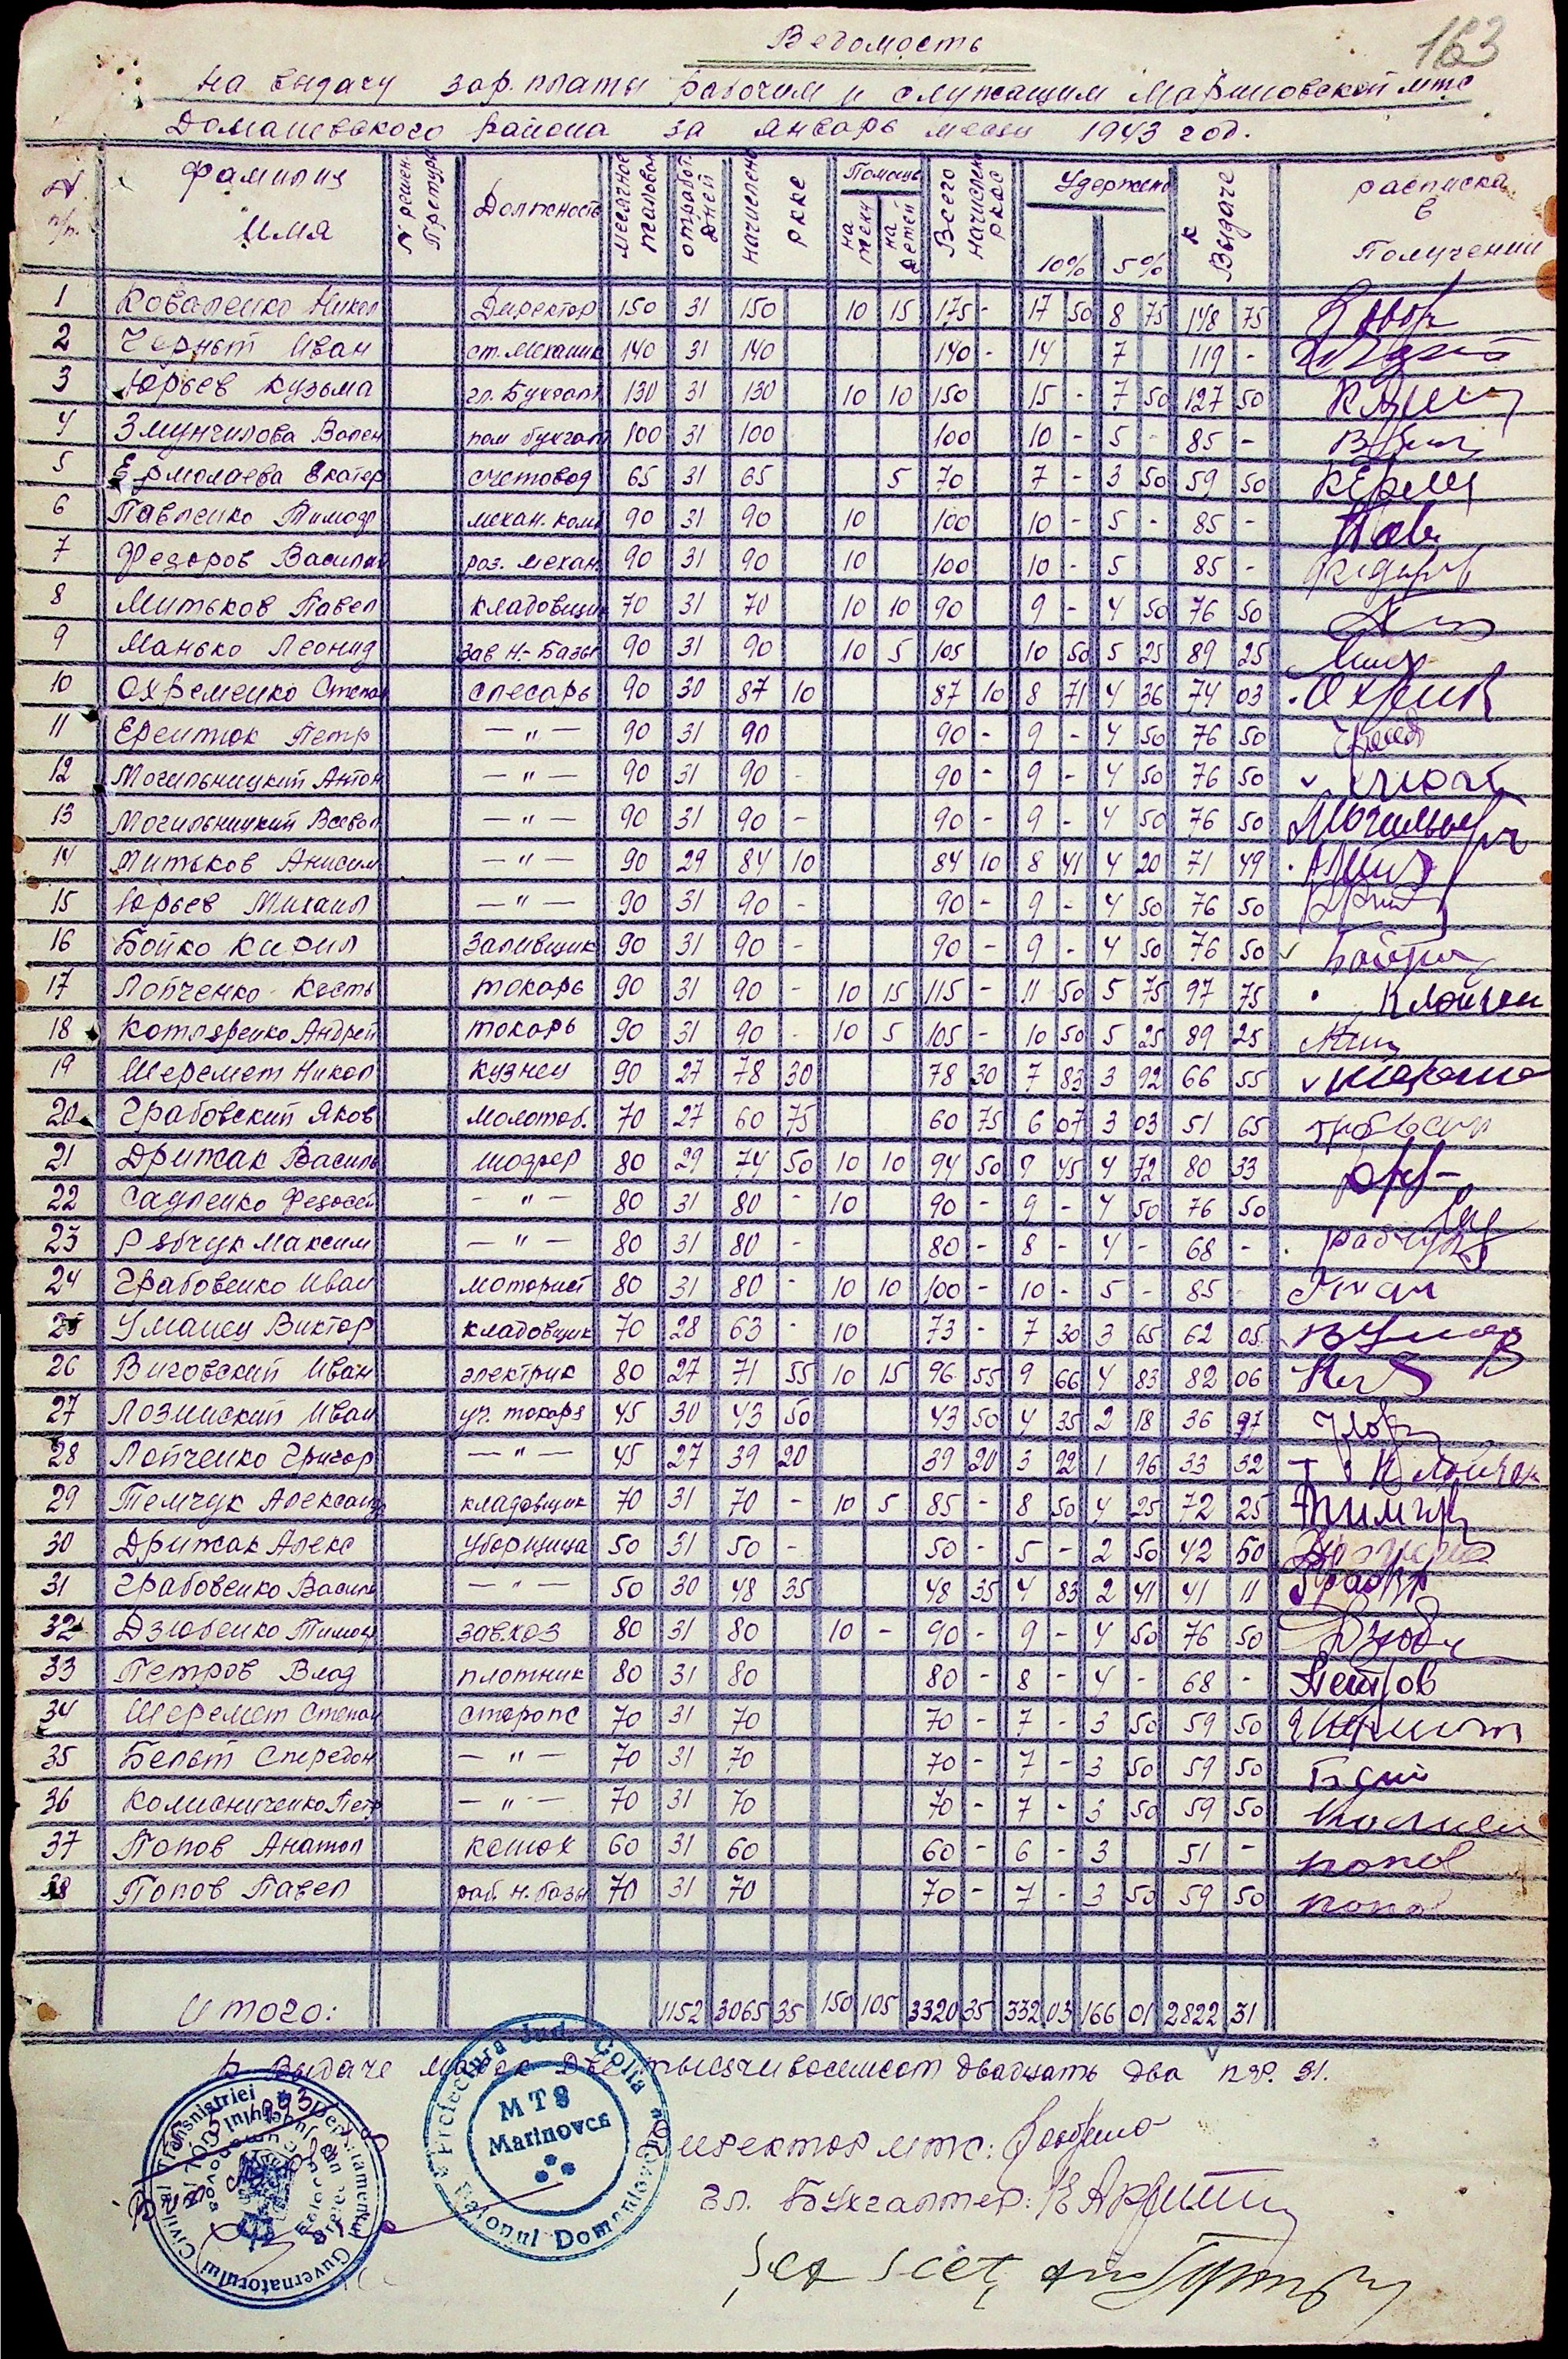 163
Ведомость
на выдачу зар. платы рабочим и служащим Мариновской мтс
Доманевского района за январь месяц 1943 год.
№ п/п. Фамилия Имя № решен. Претуры Должность месячное жалован отработ. дней начислено ркке Помощь на жену на детей Всего начислен ркас Удержано 10% 5% к Выдаче расписка в Получении
1 Коваленко Никол Директор 150 31 150 10 15 175 - 17 50 8 75 148 75
2 Черный Иван ст. механик 140 31 140 140 - 14 7 119 -
3 Юрьев Кузьма гл. Бухгалт 130 31 130 10 10 150 15 - 7 50 127 50
4 Змунчилова Вален пом бухгалт 100 31 100 100 10 - 5 - 85 -
5 Ермолаева Екатер счетовод 65 31 65 5 70 7 - 3 50 59 50
6 Павленко Тимоф механ. комб 90 31 90 10 100 10 - 5 - 85 -
7 Федоров Василий раз. механ 90 31 90 10 100 10 - 5 85 -
8 Митьков Павел кладовщик 70 31 70 10 10 90 9 - 4 50 76 50
9 Манько Леонид зав н.-базы 90 31 90 10 5 105 10 50 5 25 89 25
10 Охременко Степан слесарь 90 30 87 10 87 10 8 71 4 36 74 03
11 Ерентюк Петр — " — 90 31 90 90 - 9 - 4 50 76 50
12 Могильницкий Антон — " — 90 31 90 - 90 - 9 - 4 50 76 50
13 Могильницкий Всевол — " — 90 31 90 - 90 - 9 - 4 50 76 50
14 Митьков Анисим — " — 90 29 84 10 84 10 8 41 4 20 71 49
15 Юрьев Михаил — " — 90 31 90 - 90 - 9 - 4 50 76 50
16 Бойко Кирил Заливщик 90 31 90 - 90 - 9 - 4 50 76 50
17 Лопченко Кость токарь 90 31 90 - 10 15 115 - 11 50 5 75 97 75
18 Котляренко Андрей токарь 90 31 90 - 10 5 105 - 10 50 5 25 89 25
19 Шеремет Никол кузнец 90 27 78 30 78 30 7 83 3 92 66 55
20 Грабовский Яков молотоб. 70 27 60 75 60 75 6 07 3 03 51 65
21 Дрижак Василь шофер 80 29 74 50 10 10 94 50 9 45 4 72 80 33
22 Садленко Федосей — " — 80 31 80 - 10 90 - 9 - 4 50 76 50
23 Рябчук Максим — " — 80 31 80 - 80 - 8 - 4 - 68 -
24 Грабовенко Иван моторист 80 31 80 - 10 10 100 - 10 - 5 - 85 -
25 Уманец Виктор кладовщик 70 28 63 - 10 73 - 7 30 3 65 62 05
26 Виговский Иван электрик 80 27 71 55 10 15 96 55 9 66 4 83 82 06
27 Лозинский Иван уч. токаря 45 30 43 50 43 50 4 35 2 18 36 97
28 Лопченко Григор — " — 45 27 39 20 39 20 3 92 1 96 33 32
29 Темчук Александ кладовщик 70 31 70 - 10 5 85 - 8 50 4 25 72 25
30 Дрижак Алекс уборщица 50 31 50 - 50 - 5 - 2 50 42 50
31 Грабовенко Васил — " — 50 30 48 35 48 35 4 83 2 41 41 11
32 Дзюбенко Тимоф завхоз 80 31 80 10 - 90 - 9 - 4 50 76 50
33 Петров Влад плотник 80 31 80 80 - 8 - 4 - 68 - Петров
34 Шеремет Степан сторож 70 31 70 70 - 7 - 3 50 59 50
35 Белый Спередон — " — 70 31 70 70 - 7 - 3 50 59 50
36 Колисниченко Петр — " — 70 31 70 70 - 7 - 3 50 59 50
37 Попов Анатол конюх 60 31 60 60 - 6 - 3 51 - попов
38 Попов Павел раб. н. базы 70 31 70 70 - 7 - 3 50 59 50 попов
Итого: 1152 3065 35 150 105 3320 35 332 03 166 01 2822 31
К выдаче марок Две тысячи восемсот двадцать два пф. 31.
Prefectura Jud. Golta
MTS
Marinovca
Raionul Domaniovca
Guvernatorul Civil al Transnistriei
Директор мтс:
Гл. Бухгалтер: